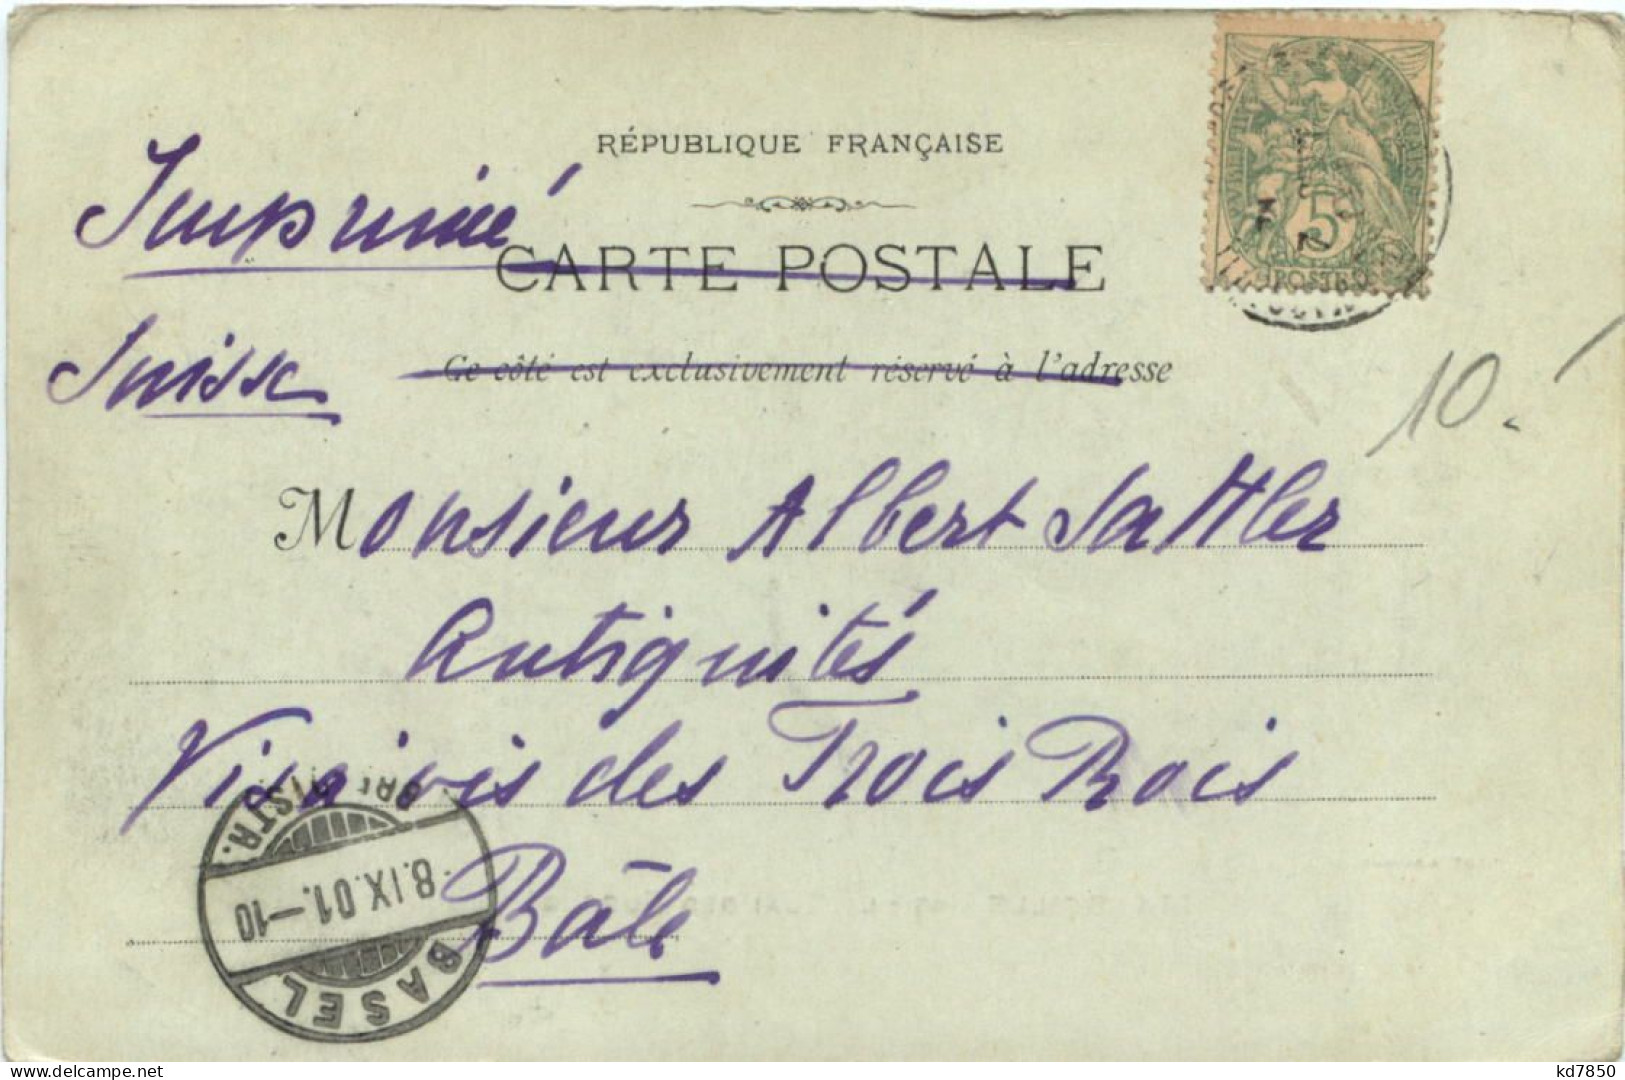 RÉPUBLIQUE FRANÇAISE
Imprimé
CARTE POSTALE
Suisse
Ce côté est exclusivement réservé à l'adresse
10.-
Monsieur Albert Sattler
Antiquités
Vis à vis des Trois Rois
Bâle
5
POSTES
BASEL
8.IX.01.-10
BRIEFDISTR.
kd7850